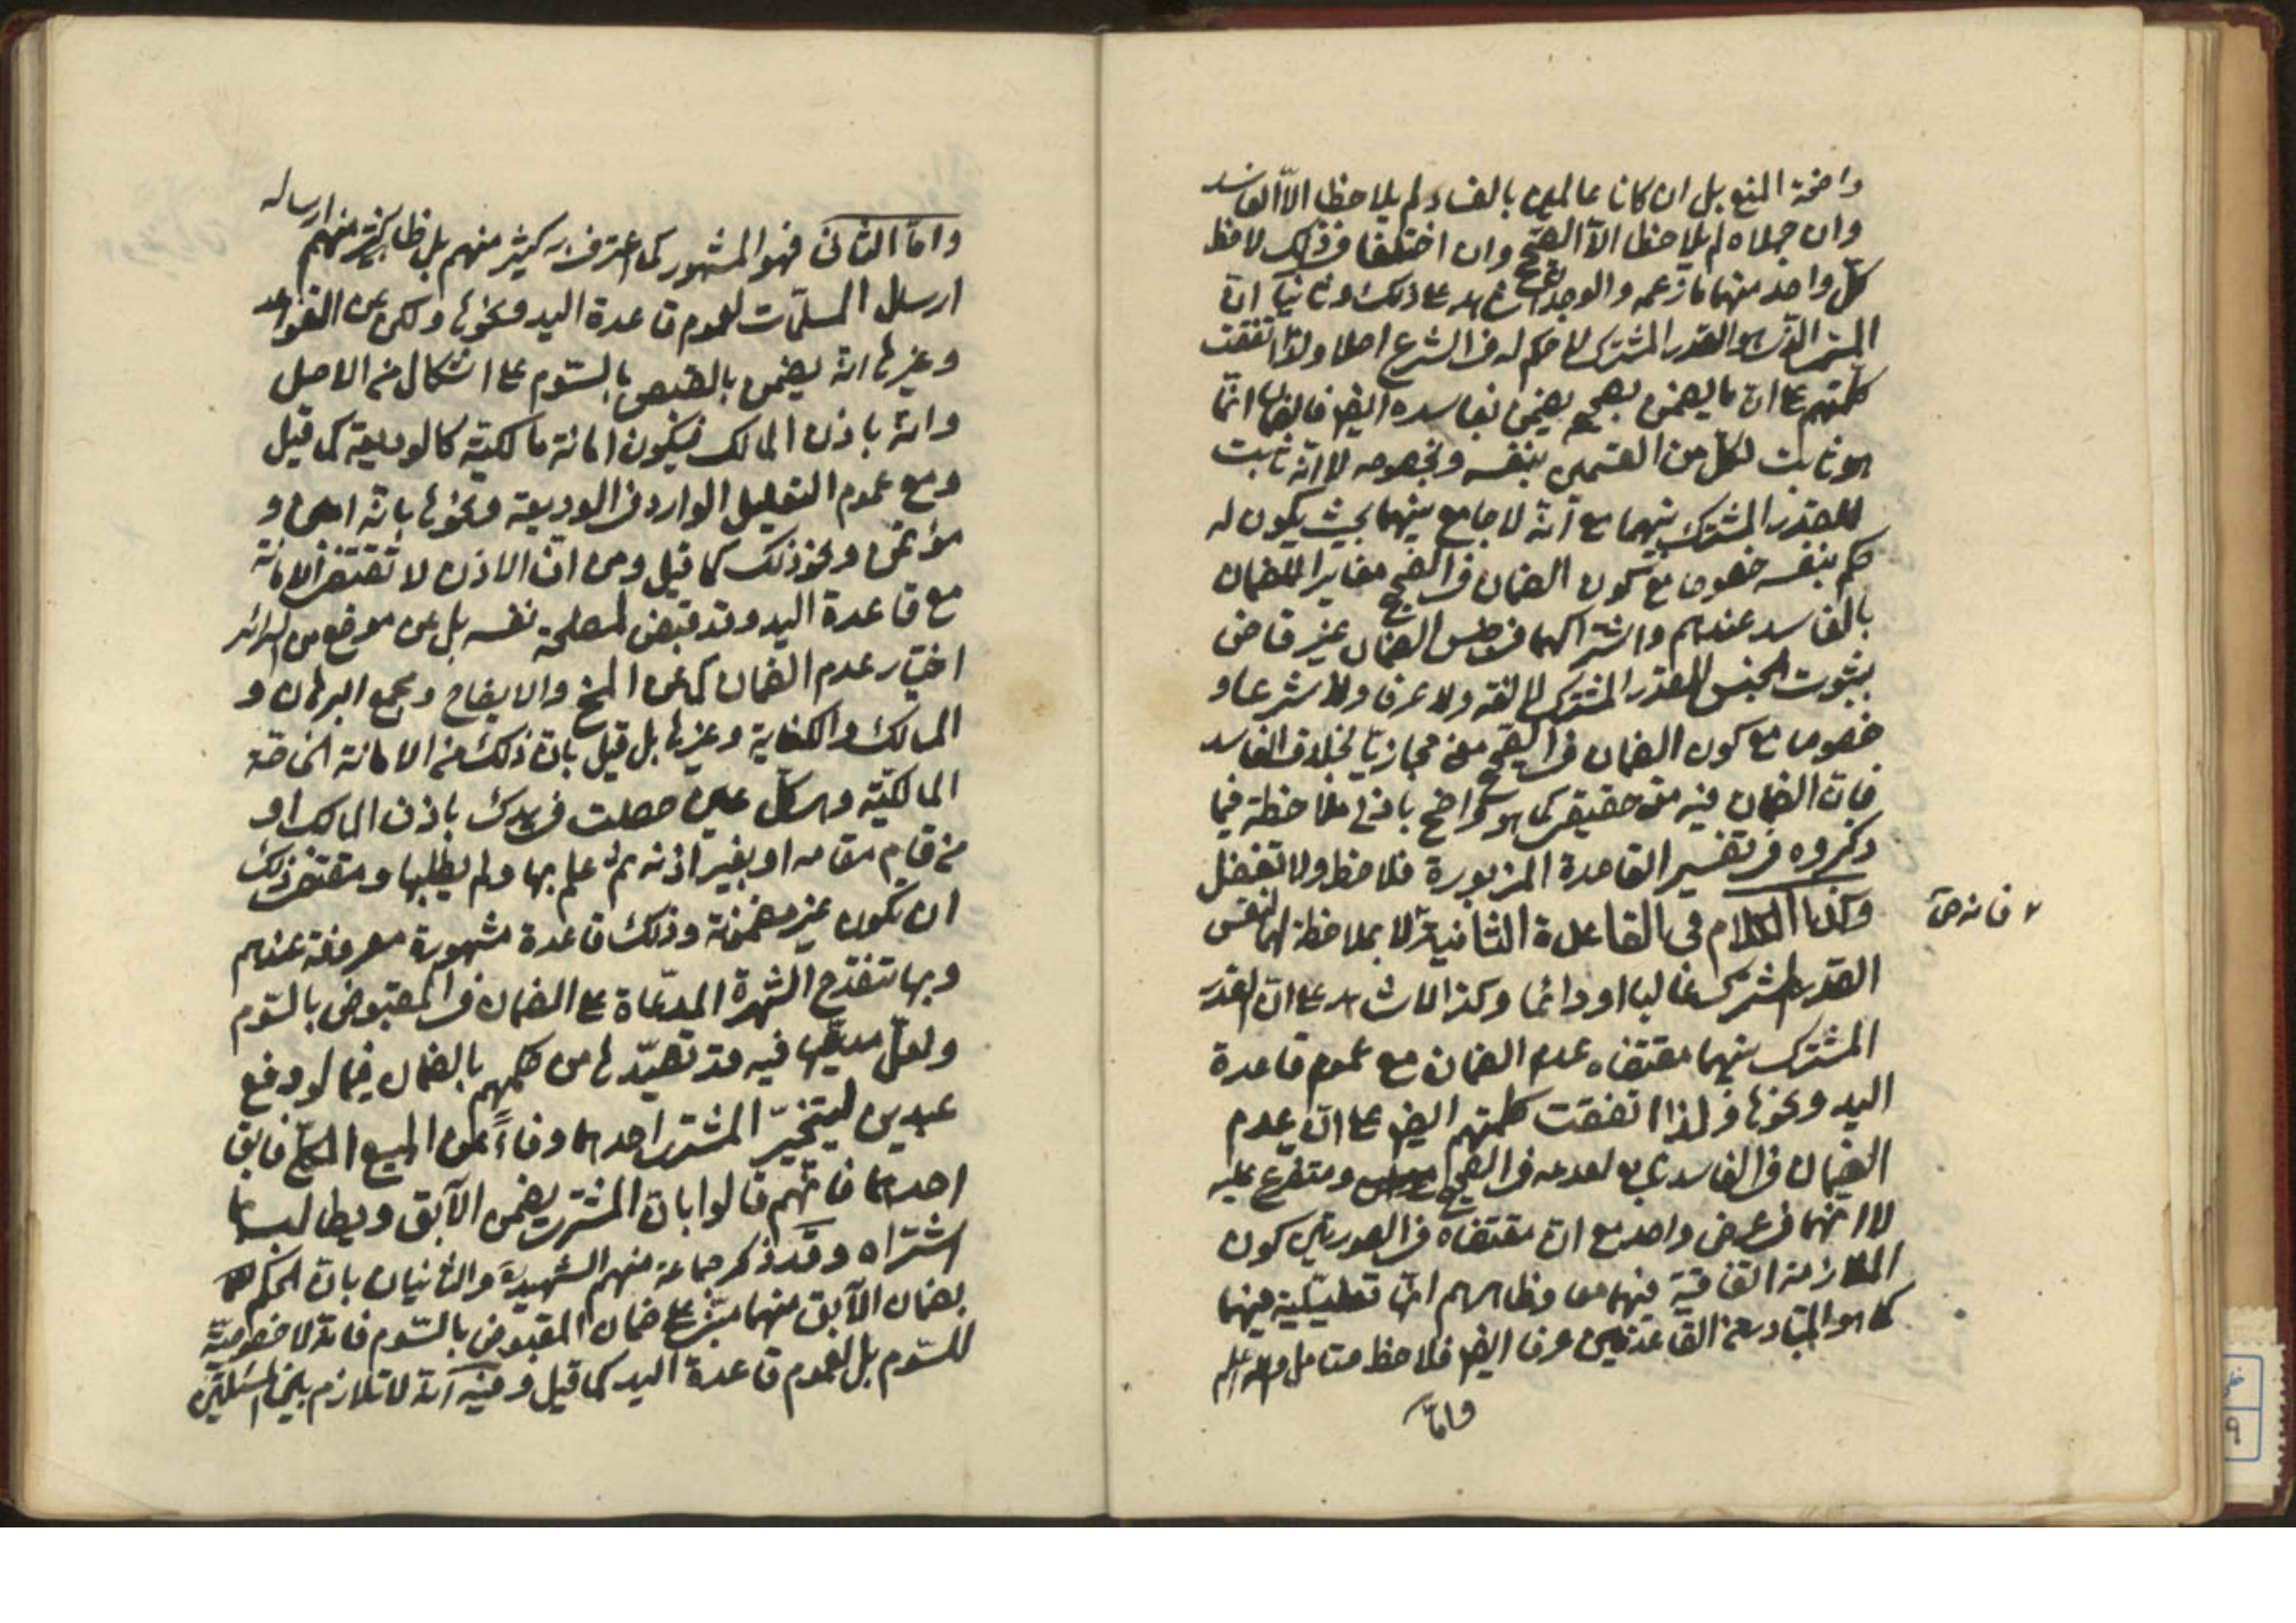 واضحة المنع بل ان كانا عالمين بالفساد لم يلاحظا الّا الفاسد
وان جهلاه لم يلاحظا الّا الصحيح وان اختلفا فذاك لاحظ
كلّ واحد منهما ما زعمه والوجدان شاهد على ذلك وثانيا انّ
المشترى الذى هو القدر المشترك لا حكم له فى الشرع اصلا ولذا اتفقت
كلمتهم على ان ما يضمن بصحيحه يضمن بفاسده ايضا فالضمان انّما
هو ثابت لكل من القسمين بنفسه وبخصوصه لا انّه ثابت
للقدر المشترك بينهما مع انّه لا جامع بينهما بحيث يكون له
حكم بنفسه خصوصا مع كون الضمان فى الصحيح مغايرا للضمان
بالفاسد عندهم واشتراكهما فى جنس الضمان غير قاض
بثبوت الجنس للقدر المشترك لا لغة ولا عرفا ولا شرعا و
خصوصا مع كون الضمان فى الصحيح معنى مجازيّا بخلاف الفاسد
فان الضمان فيه معنى حقيقى كما هو واضح بادنى ملاحظة فيما
ذكروه فى تفسير القاعدة المزبورة فلاحظ ولا تغفل
وكذا الكلام فى القاعدة الثانية لا بملاحظة انها نفس
القدر المشترك غالبا او دائما وكذا لا شاهد على انّ القدر
المشترك بينهما مقتضاه عدم الضمان مع عموم قاعدة
اليد ونحوها ولذا اتفقت كلمتهم ايضا على انّ عدم
الضمان فى الفاسد تابع لعدمه فى الصحيح ومتفرع عليه
لا انّهما فى عرض واحد مع ان مقتضاه فى الصورتين كون
الملازمة اتفاقية فيهما معا وظاهرهم انّها تعليقية فيهما
كما هو المتبادر من القاعدتين عرفا ايضا فلاحظ متامل والله اعلم
وامّا
فانه حق
وامّا الثانى فهو المشهور كما اعترف به كثير منهم بل ظاهر كثير منهم ارساله
ارسال المسلّمات لعموم قاعدة اليد ونحوها ولكن عن القواعد
وغيرها انّه يضمن بالقبض بالسّوم على اشكال من الاصل
وانّه باذن المالك فيكون امانة مالكيّة كالوديعة كما قيل
ومع عموم التعليل الوارد فى الوديعة ونحوها بانّه امين و
مؤتمن ونحو ذلك كما قيل ومن انّ الاذن لا تقتضى الامانة
مع قاعدة اليد وقد قبض لمصلحة نفسه بل عن موضع من السرائر
اختيار عدم الضمان كما عن المخ والايضاح ومجمع البرهان و
المسالك والكفاية وغيرها بل قيل بانّ ذلك من الامانة الخاصّة
المالكيّة وهى كلّ عين حصلت فى يدك باذن المالك او
من قام مقامه او بغير اذنه ثمّ علم بها ولم يطلبها ومقتضى ذلك
ان تكون غير مضمونة وذلك قاعدة مشهورة معروفة عندهم
وبها تنقدح الشهرة المدّعاة على الضمان فى المقبوض بالسّوم
ولعلّ مدعيها فيه قد تصيّدها من حكمهم بالضمان فيما لو دفع
عبدين ليتخيّر المشترى احدهما وفاءً عن المبيع الكلّى فابق
احدهما فانّهم قالوا بان المشترى يضمن الآبق ويطالب بما
اشتراه وقد ذكر جماعة منهم الشهيد والثانيان بانّ الحكم
بضمان الآبق منهما مبنىّ على ضمان المقبوض بالسّوم فانّه لا خصوصيّة
للسّوم بل لعموم قاعدة اليد كما قيل وفيه انّه لا تلازم بين المسئلتين